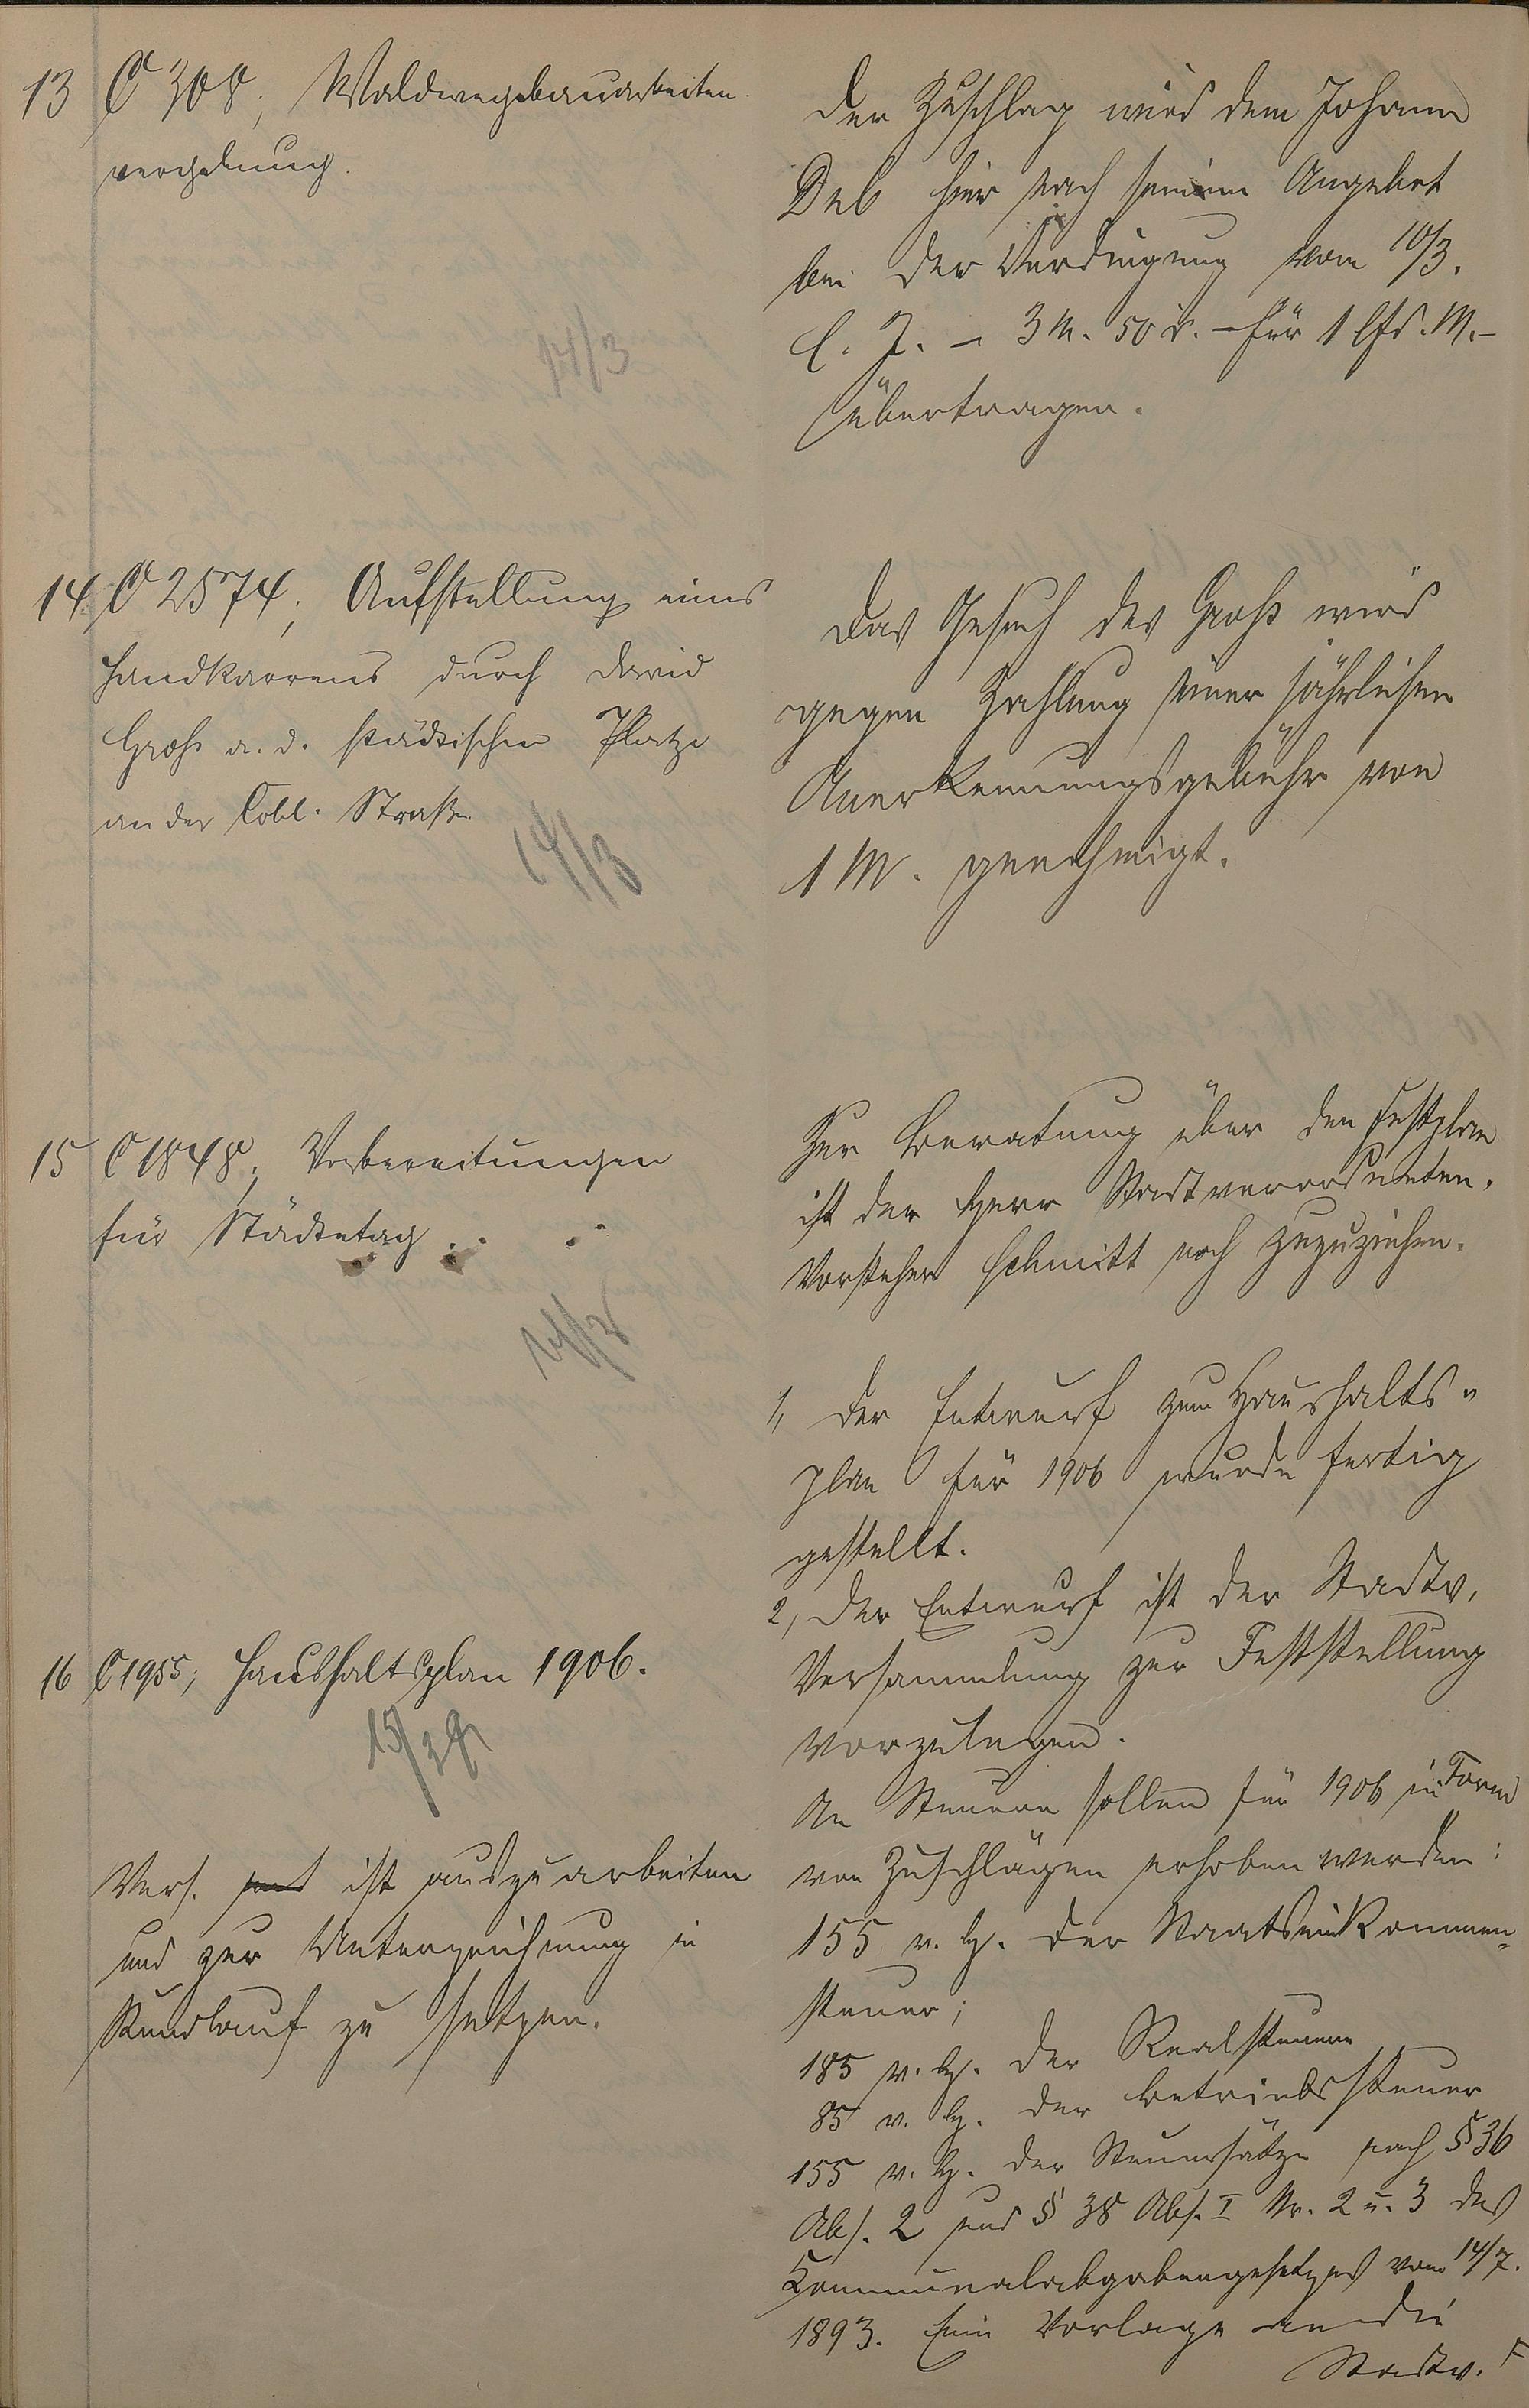 13 C 308; Waldwegebauarbeiten-
vergebung.
14/3
Der Zuschlag wird dem Johann
hier nach seinem Angebot
bei der Verdingung vom 10/3.
l. J. – 3 M. 50 d. – für 1 lfd. M. –
übertragen.
14 C 2574; Aufstellung eines
Handkarrens durch David
Groß a. d. städtischen Platze
an der Cobl. Straße.
14/3
Das Gesuch des Groß wird
gegen Zahlung einer jährlichen
Anerkennungsgebühr von
1 M. genehmigt.
15 C 1848; Vorbereitungen
für Städtetag.
14/3
Zur Beratung über den Festplan
ist der Herr Stadtverordneten-
Vorsteher Schmitt noch zuzuziehen.
16 C 1955; Haushaltsplan 1906.
15/3
Vers. ist auszuarbeiten
und zur Unterzeichnung in
Rundlauf zu setzen.
1, Der Entwurf zum Haushalts-
plan für 1906 wurde fertig
gestellt.
2, Der Entwurf ist der Stadtv.
Versammlung zur Feststellung
vorzulegen.
An Steuern sollen für 1906 in Form
von Zuschlägen erhoben werden:
155 v. H. der Staatseinkommen-
steuer;
185 v. H. der Realsteuern
85 v. H. der Betriebssteuer
155 v. H. der Steuersätze nach § 36
Abs. 2 und § 38 Abs. I Nr. 2 u. 3 des
Kommunalabgabengesetzes vom 14/7.
1893. Vorlage an die
Stadtv. F